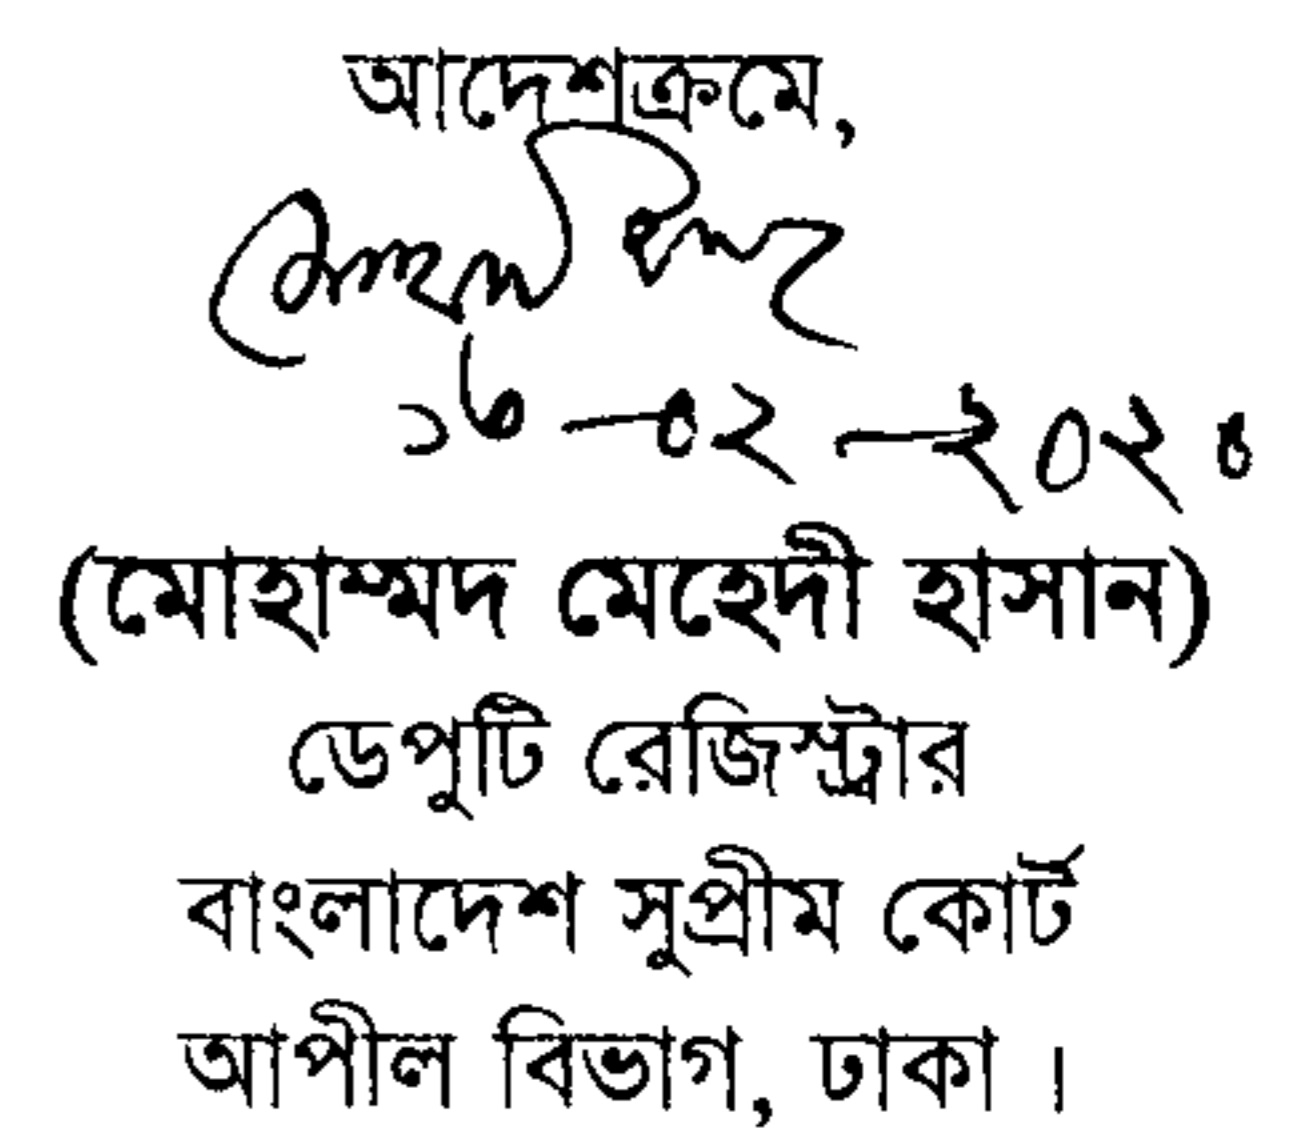 আদেশক্রমে,
(মোহাম্মদ মেহেদী হাসান)
ডেপুটি রেজিস্ট্রার
বাংলাদেশ সুপ্রীম কোর্ট
আপীল বিভাগ, ঢাকা।